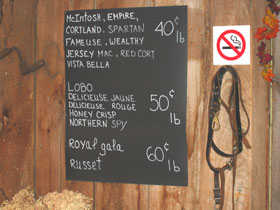 McIntosh, EMPIRE,
CORTLAND. SPARTAN 40¢
FAMEUSE, WEALTHY lb
JERSEY MAC, RED CORT
VISTA BELLA
LOBO
DELICIEUSE JAUNE 50¢
DELICIEUSE ROUGE lb
HONEY CRISP
NORTHERN SPY
Royal gala 60¢
Russet lb